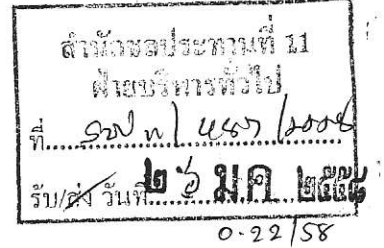 สำนักชลประทานที่ 11
ฝ่ายบริหารทั่วไป
ที่
รับ/ส่ง วันที่ ๒๖ ม.ค. ๒๕๕๘
0.22/58